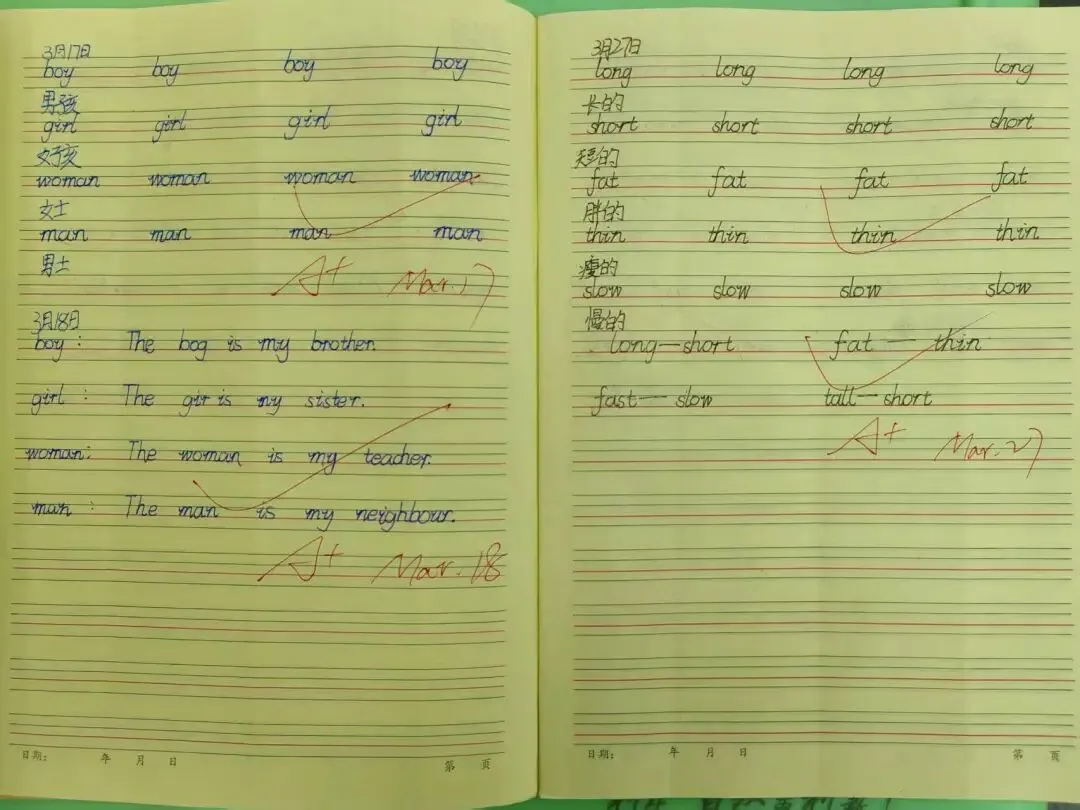 3月17日
boy boy boy boy
男孩
girl girl girl girl
女孩
woman woman woman woman
女士
man man man man
男士
A+ Mar.17
3月18日
boy: The bog is my brother.
girl: The gir is my sister.
woman: The woman is my teacher.
man: The man is my neighbour.
A+ Mar.18
日期: 年 月 日
第 页
3月27日
long long long long
长的
short short short short
短的
fat fat fat fat
胖的
thin thin thin thin
瘦的
slow slow slow slow
慢的
long—short fat—thin
fast—slow tall—short
A+ Mar.27
日期: 年 月 日
第 页